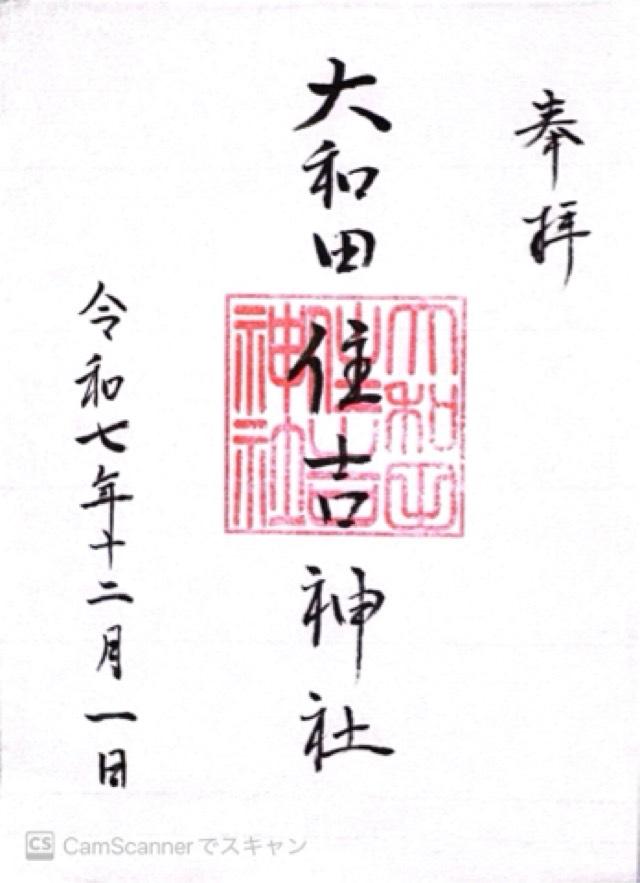 奉拝
大和田住吉神社
大和田
住吉
神社
令和七年十二月一日
CS CamScannerでスキャン